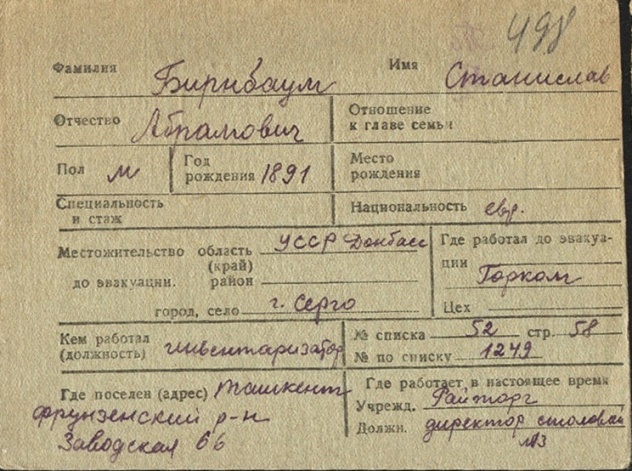 498
Фамилия Бирнбаум Имя Станислав
Отчество Абрамович Отношение к главе семьи
Пол м Год рождения 1891 Место рождения
Специальность и стаж Национальность евр.
Местожительство до эвакуации. область (край) УССР Донбасс
район
город, село г. Серго
Где работал до эвакуации Горком
Цех
Кем работал (должность) инвентаризатор
№ списка 52 стр. 58
№ по списку 1249
Где поселен (адрес) Ташкент
Фрунзенский р-н
Заводская 66
Где работает в настоящее время
Учрежд. Райторг
Должн. директор столовой
№3